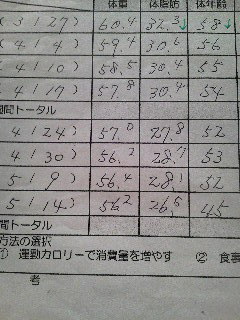 体重 体脂肪 体年齢
(3/27) 60.4 32.3↓ 58↓
(4/4) 59.4 30.6 56
(4/10) 58.5 30.4 55
(4/17) 57.8 30.4 54
間トータル
(4/24) 57.0 27.8 52
(4/30) 56.2 28.7 53
(5/9) 56.4 28.1 52
(5/14) 56.2 26.6 45
間トータル
方法の選択
① 運動カロリーで消費量を増やす ② 食事
考